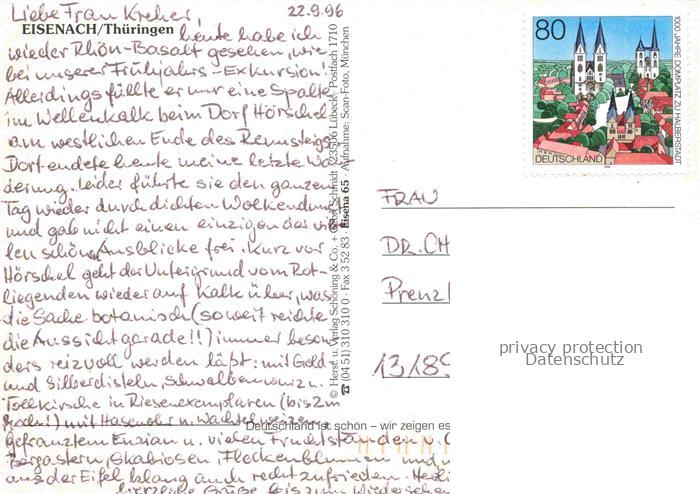 Liebe Frau Kreher, 22.9.96
EISENACH/Thüringen
heute habe ich
wieder Rhön-Basalt gesehen, wie
bei unserer Frühjahrs-Exkursion!
Allerdings füllte er nur eine Spalte
im Wellenkalk beim Dorf Hörschel
am westlichen Ende des Rennsteigs.
Dort endete heute meine letzte Wan-
derung. Leider führte sie den ganzen
Tag wieder durch dichten Wolkendunst
und gab nicht einen einzigen der vie-
len schönen Ausblicke frei. Kurz vor
Hörschel geht der Untergrund vom Rot-
liegenden wieder auf Kalk über, was
die Sache botanisch (soweit reichte
die Aussicht gerade!!) immer beson-
ders reizvoll werden läßt: mit Gold-
und Silberdisteln, Schwalbenwurz,
Tollkirsche in Riesenexemplaren (bis 2m
hoch!) mit Hasenohr u. Wachtelweizen
gefranztem Enzian u. vielen Fruchtständen u.
Bergastern, Skabiosen, Flockenblumen und
aus der Eifel klang auch recht zufrieden.
herzliche Grüße bis zum Wiedersehen
© Herst. u. Verlag Schöning & Co. + Gebr. Schmidt · 23506 Lübeck · Postfach 1710
☎ (04 51) 310 310 0 · Fax 3 52 83 · Eisena 65 · Aufnahme: Scan-Foto, München
Deutschland ist schön – wir zeigen es
80
DEUTSCHLAND
1000 JAHRE DOMPLATZ ZU HALBERSTADT
FRAU
DR. CH
Prenzl
13189
privacy protection
Datenschutz